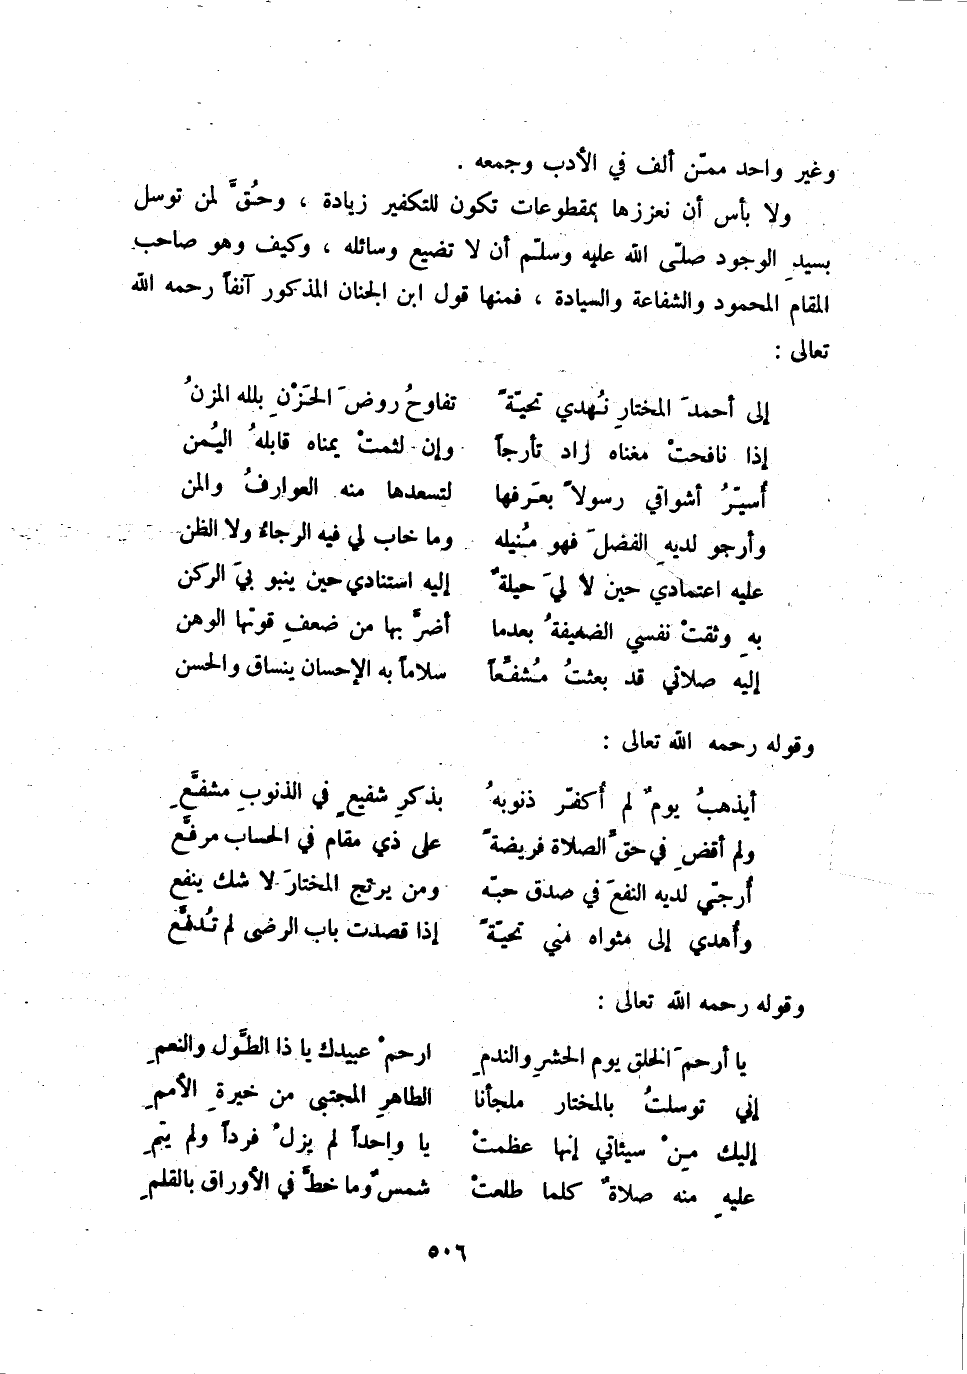 وغير واحد ممّن ألف في الأدب وجمعه .
ولا بأس أن نعززها بمقطوعات تكون للتكفير زيادة ، وحُقَّ لمن توسل
بسيدِ الوجود صلّى الله عليه وسلّم أن لا تضيع وسائله ، وكيف وهو صاحب
المقام المحمود والشفاعة والسيادة ، فمنها قول ابن الجنان المذكور آنفاً رحمه الله
تعالى :
إلى أحمدَ المختارِ نُهدي تحيّةً تفاوحُ روضَ الحَزْنِ بلله المزنُ
إذا نافحتْ مغناه زاد تأرجاً وإن لثمتْ يمناه قابلهُ اليُمن
أُسيّرُ أشواقي رسولاً بعَرفها لتسعدها منه العوارفُ والمن
وأرجو لديهِ الفضلَ فهو مُنيله وما خاب لي فيه الرجاءُ ولا الظن
عليه اعتمادي حين لا ليَ حيلةٌ إليه استنادي حين ينبو بيَ الركن
بهِ وثقتْ نفسي الضعيفةُ بعدما أضرَّ بها من ضعفِ قوتها الوهن
إليه صلاتي قد بعثتُ مُشفَّعاً سلاماً به الإحسان ينساق والحسن
وقوله رحمه الله تعالى :
أيذهبُ يومٌ لم أُكفّر ذنوبهُ بذكرِ شفيعٍ في الذنوبِ مشفَّعِ
ولم أقضِ في حقِّ الصلاة فريضةً على ذي مقام في الحساب مرفَّع
أُرجّي لديه النفعَ في صدق حبّه ومن يرتج المختارَ لا شك ينفع
وأُهدي إلى مثواه مني تحيّةً إذا قصدت باب الرضى لم تُدفَّع
وقوله رحمه الله تعالى :
يا أرحمَ الخلق يوم الحشرِ والندمِ ارحمْ عبيدك يا ذا الطَّول والنعمِ
إني توسلتُ بالمختار ملجأنا الطاهرِ المجتبى من خيرةِ الأممِ
إليك مِنْ سيئاتي إنها عظمتْ يا واحداً لم يزلْ فرداً ولم يتمِ
عليهِ منه صلاةٌ كلما طلعتْ شمسٌ وما خطَّ في الأوراق بالقلمِ
٥٠٦